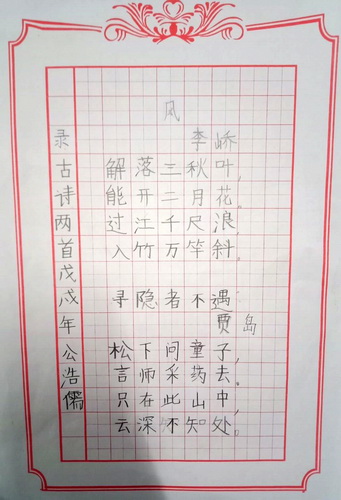 风
李峤
解落三秋叶，
能开二月花。
过江千尺浪，
入竹万竿斜。
寻隐者不遇
贾岛
松下问童子，
言师采药去。
只在此山中，
云深不知处。
录古诗两首戊戌年公浩儒